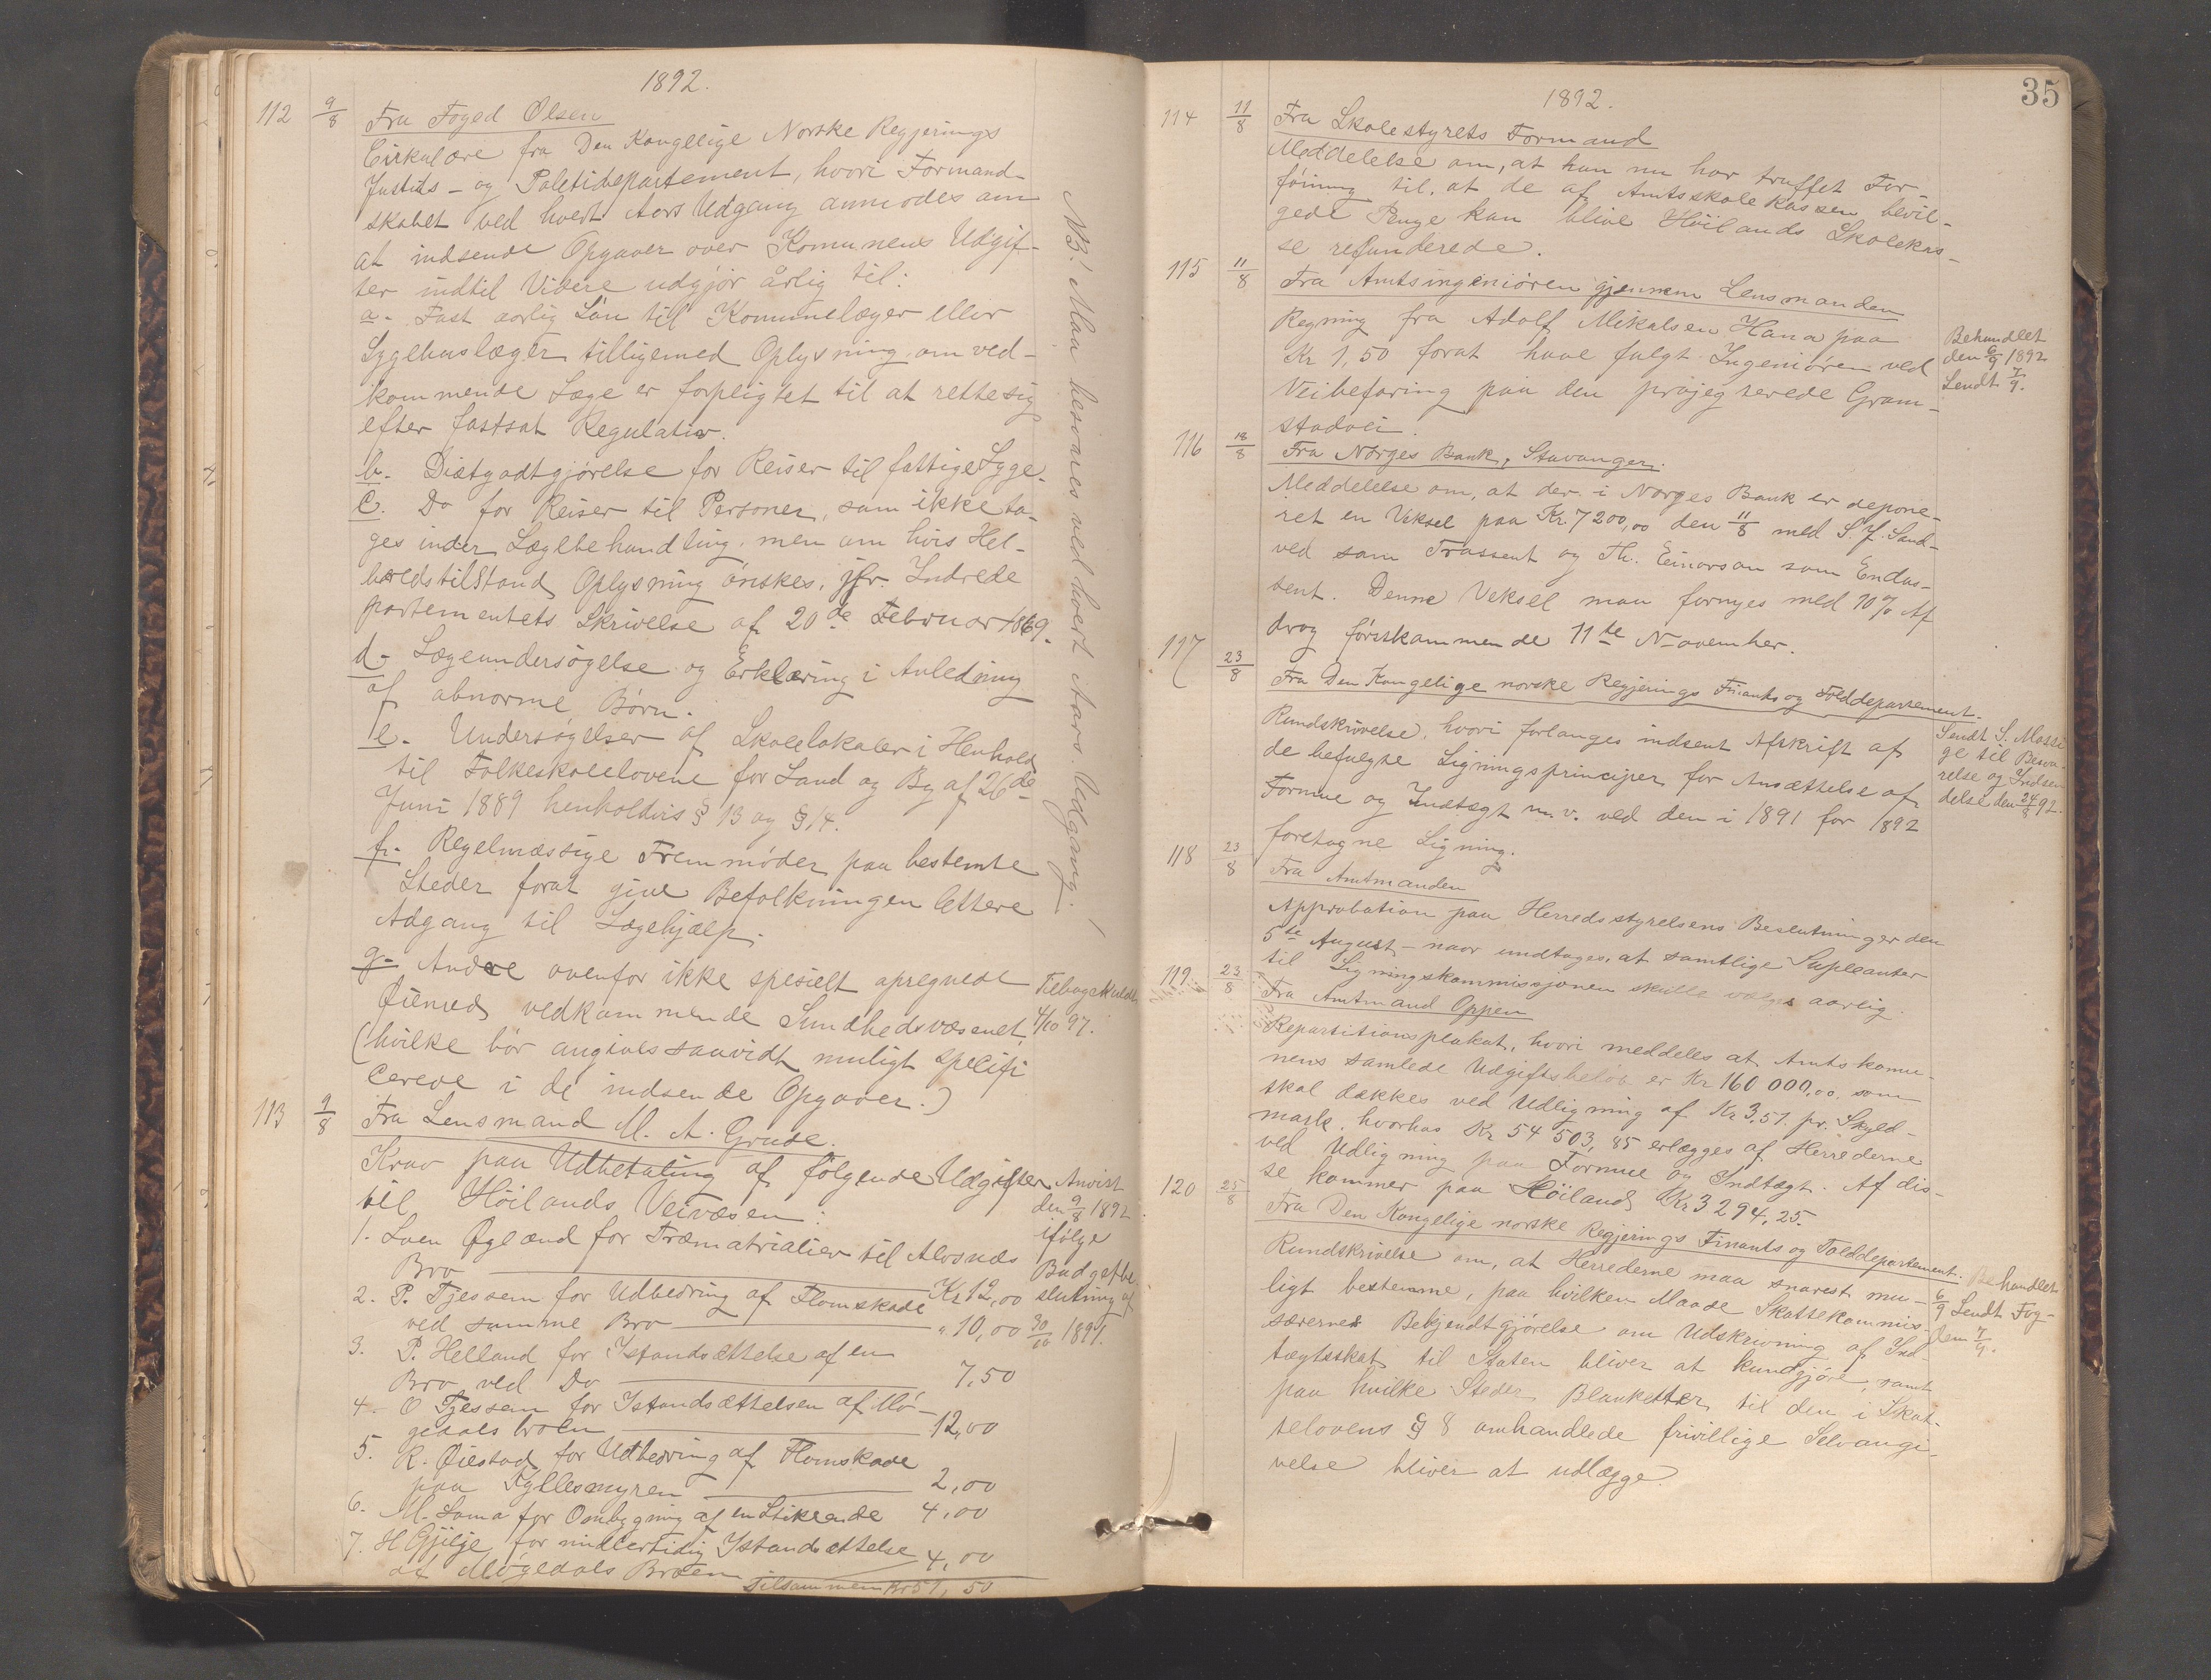 1892.
112 9/8 Fra Foged Olsen
Cirkulære fra Den Kongelige Norske Regjerings
Justits- og Politidepartement, hvori Formand-
skabet ved hvert Aars Udgang anmodes om
at indsende Opgaver over Komunens Udgif-
ter indtil Videre udgjør årlig til:
a- Fast aarlig Løn til Komunelæger eller
Sygehuslæger tilligemed Oplysning om ved-
kommende Læge er forpligtet til at rette sig
efter fastsat Regulativ.
b- Diætgodtgjørelse for Reiser til fattige Syge.
c. Do for Reiser til Personer, som ikke ta-
ges under Lægebehandling, men om hvis Hel-
bredstilstand Oplysning ønskes, jfr. Indrede
partementets Skrivelse af 20de Februar 1869.
d- Lægeundersøgelse og Erklæring i Anledning
af abnorme Børn.
e- Undersøgelser af Skolelokaler i Henhold
til Folkeskolelovene for Land og By af 26de
Juni 1889 henholdvis § 13 og § 14.
f- Regelmæssige Fremmøder paa bestemte
Steder forat give Befolkningen lettere
Adgang til Lægehjælp.
g- Andre ovenfor ikke spesielt opregnede
Øiemed vedkommende Sundhedsvæsenet,
(hvilke bør angives saavidt muligt specifi
cerede i de indsendte Opgaver.)
NB! Maa besvares ved hvert Aars Udgang!
4/10 97.
113 9/8 Fra Lensmand M. A. Grude.
Krav paa Udbetaling af følgende Udgifter
til Höilands Veivæsen:
1. Sven Øglænd for Træmatrialier til Alvsnæs
Bro Kr 12,00
2. P. Tjessem for Udbedring af Flomskade
ved samme Bro " 10,00
3. P. Helland for Istandsættelse af en
Bro ved Do 7,50
4- O Tjessem for Istandsættelsen af Mö-
gedals broen 12,00
5. R. Øiestad for Udbedring af Flomskade
paa Kyllesmyren 2,00
6. M. Soma for Ombygning af en Stikrende 4,00
7. H Gjilje for midlertidig Istandsættelse
af Møgedals Broen 4,00
Tilsammen Kr 51,50
Anvist
den 9/8 1892
ifølge
Budgetbe-
slutning af
30/10 1891.
35
1892.
114 11/8 Fra Skolestyrets Formand
Meddelelse om, at han nu har truffet For-
föining til, at de af Amtsskolekassen bevil-
gede Penge kan blive Höilands Skolekas-
se refunderede.
115 11/8 Fra Amtsingeniøren gjennem Lensmanden
Regning fra Adolf Mikalsen Hana paa
Kr 1,50 forat have fulgt Ingeniøren ved
Veibefaring paa den projegterede Gram-
stadvei.
Behandlet
den 6/9 1892
Sendt 7/9.
116 18/8 Fra Norges Bank, Stavanger.
Meddelelse om, at der i Norges Bank er depone-
ret en Veksel paa Kr. 7200,00 den 11/8 med S. J. Sand-
ved som Trassent og Th. Einarson som Endos-
sent. Denne Veksel maa fornyes med 10% Af
drag førstkommende 11te November.
117 23/8 Fra Den Kongelige norske Regjerings Finants og Tolddepartement.
Rundskrivelse, hvori forlanges indsent Afskrift af
de befulgte Ligningsprinciper for Ansættelse af
Formue og Indtægt m. v. ved den i 1891 for 1892
foretagne Ligning.
Sendt S. Mossi
ge til Besva-
relse og Indsen
delse den 24/8 92.
118 23/8 Fra Amtmanden
Approbation paa Herredsstyrelsens Beslutninger den
5te August - naar undtages, at samtlige Supleanter
til Ligningskommissjonen skulle vælges aarlig.
119. 23/8 Fra Amtmand Oppen
Repartitionsplakat, hvori meddeles at Amtskomu-
nens samlede Udgiftsbeløb er Kr 160 000,00, som
skal dækkes ved Udligning af Kr 3,51. pr. Skyld-
mark, hvorhos Kr 54 503,85 erlægges af Herrederne
ved Udligning paa Formue og Indtægt. Af dis-
se kommer paa Höiland Kr 3294,25.
120 25/8 Fra Den Kongelige norske Regjerings Finants og Tolddepartement.
Rundskrivelse om, at Herrederne maa snarest mu-
ligt bestemme, paa hvilken Maade Skattekommis-
særernes Bekjendtgjörelse om Udskrivning af Ind-
tægtsskat til Staten bliver at kundgjøre, samt
paa hvilke Steder Blanketter til den i Skat-
telovens § 8 omhandlede frivillige Selvangi-
velse bliver at udlægge.
Behandlet
6/9 Sendt Fog-
den 7/9.